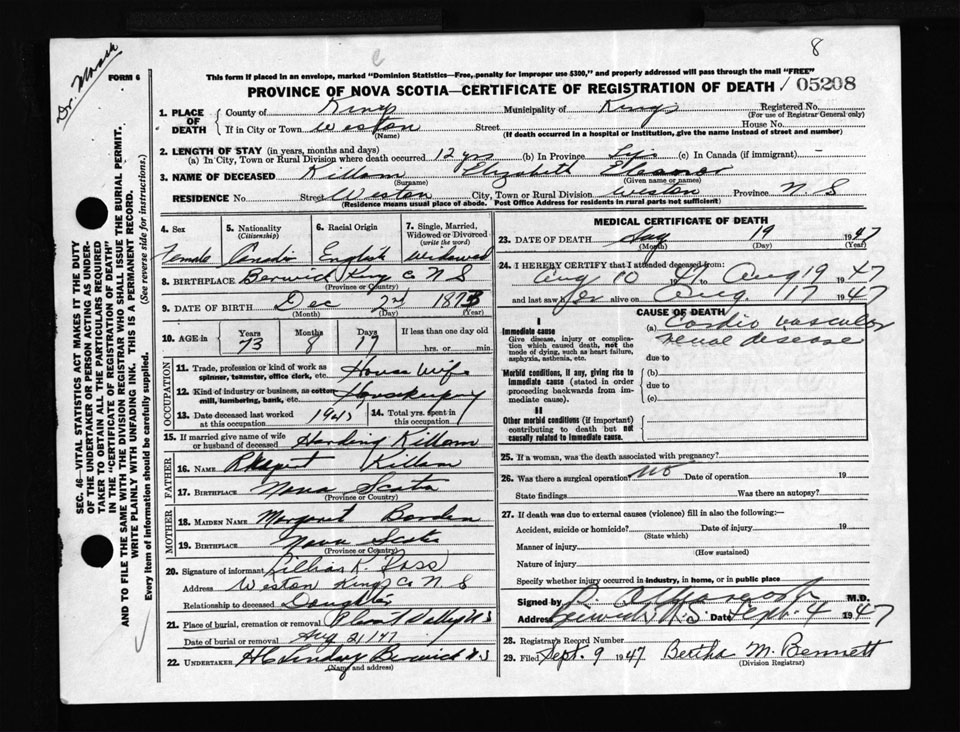 8
Dr. Morash
FORM 6
This form if placed in an envelope, marked "Dominion Statistics—Free, penalty for improper use $300," and properly addressed will pass through the mail "FREE"
PROVINCE OF NOVA SCOTIA—CERTIFICATE OF REGISTRATION OF DEATH 05208
SEC. 46—VITAL STATISTICS ACT MAKES IT THE DUTY
OF THE UNDERTAKER OR PERSON ACTING AS UNDER-
TAKER TO OBTAIN ALL THE PARTICULARS REQUIRED
IN THE "CERTIFICATE OF REGISTRATION OF DEATH"
AND TO FILE THE SAME WITH THE DIVISION REGISTRAR WHO SHALL ISSUE THE BURIAL PERMIT.
WRITE PLAINLY WITH UNFADING INK. THIS IS A PERMANENT RECORD.
Every item of information should be carefully supplied. (See reverse side for instructions.)
1. PLACE OF DEATH County of Kings Municipality of Kings Registered No.
(For use of Registrar General only)
If in City or Town Weston Street House No.
(Name) (If death occurred in a hospital or institution, give the name instead of street and number)
2. LENGTH OF STAY (in years, months and days)
(a) In City, Town or Rural Division where death occurred 12 yrs (b) In Province Life (c) In Canada (if immigrant) —
3. NAME OF DECEASED Killam Elizabeth Eleanor
(Surname) (Given name or names)
RESIDENCE No. Street Weston City, Town or Rural Division Weston Province N. S
(Residence means usual place of abode. Post Office Address for residents in rural parts not sufficient)
4. Sex 5. Nationality (Citizenship) 6. Racial Origin 7. Single, Married, Widowed or Divorced (write the word)
Female Canadian English Widowed
8. BIRTHPLACE Berwick Kings Co N S
(Province or Country)
9. DATE OF BIRTH Dec 2nd 1873
(Month) (Day) (Year)
10. AGE in Years Months Days If less than one day old
73 8 17 hrs. or min.
OCCUPATION
11. Trade, profession or kind of work as spinner, teamster, office clerk, etc. House Wife
12. Kind of industry or business, as cotton mill, lumbering, bank, etc. Housekeeping
13. Date deceased last worked at this occupation 1945 14. Total yrs. spent in this occupation
15. If married give name of wife or husband of deceased Harding Killam
FATHER
16. NAME Killam
17. BIRTHPLACE Nova Scotia
(Province or Country)
MOTHER
18. MAIDEN NAME Margaret Borden
19. BIRTHPLACE Nova Scotia
(Province or Country)
20. Signature of informant Lillian K. Ross
Address Weston Kings Co N S
Relationship to deceased Daughter
21. Place of burial, cremation or removal Pleasant Valley N S
Date of burial or removal Aug 21/47
22. UNDERTAKER H C Lindsay Berwick N. S
(Name and address)
MEDICAL CERTIFICATE OF DEATH
23. DATE OF DEATH Aug 19 1947
(Month) (Day) (Year)
24. I HEREBY CERTIFY that I attended deceased from
Aug 10 47 Aug 19 1947
and last saw her alive on Aug. 17 1947
CAUSE OF DEATH
I
Immediate cause (a) Cardio vascular
renal disease
Give disease, injury or complica-
tion which caused death, not the
mode of dying, such as heart failure,
asphyxia, asthenia, etc.
due to
Morbid conditions, if any, giving rise to (b)
immediate cause (stated in order due to
proceeding backwards from im-
mediate cause). (c)
II
Other morbid conditions (if important)
contributing to death but not
causally related to immediate cause.
25. If a woman, was the death associated with pregnancy?
26. Was there a surgical operation? No Date of operation 19
State findings Was there an autopsy?
27. If death was due to external causes (violence) fill in also the following:—
Accident, suicide or homicide? Date of injury 19
(State which)
Manner of injury
(How sustained)
Nature of injury
Specify whether injury occurred in industry, in home, or in public place
Signed by M.D.
Address Berwick N. S. Date Sept. 4 1947
28. Registrar's Record Number
29. Filed Sept. 9 1947 Bertha M. Bennett
(Division Registrar)